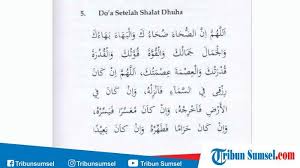 5. Do'a Setelah Shalat Dhuha
اَللّٰهُمَّ اِنَّ الضُّحَاءَ ضُحَاءُكَ وَالْبَهَاءَ بَهَاءُكَ
وَالْجَمَالَ جَمَالُكَ وَالْقُوَّةَ قُوَّتُكَ وَالْقُدْرَةَ
قُدْرَتُكَ وَالْعِصْمَةَ عِصْمَتُكَ، اَللّٰهُمَّ اِنْ كَانَ
رِزْقِى فِى السَّمَاءِ فَأَنْزِلْهُ، وَإِنْ كَانَ فِى
الْأَرْضِ فَأَخْرِجْهُ، وَإِنْ كَانَ مُعَسَّرًا فَيَسِّرْهُ،
وَإِنْ كَانَ حَرَامًا فَطَهِّرْهُ وَإِنْ كَانَ بَعِيْدًا
Tribunsumsel
@Tribunsumsel
Tribun Sumsel.com